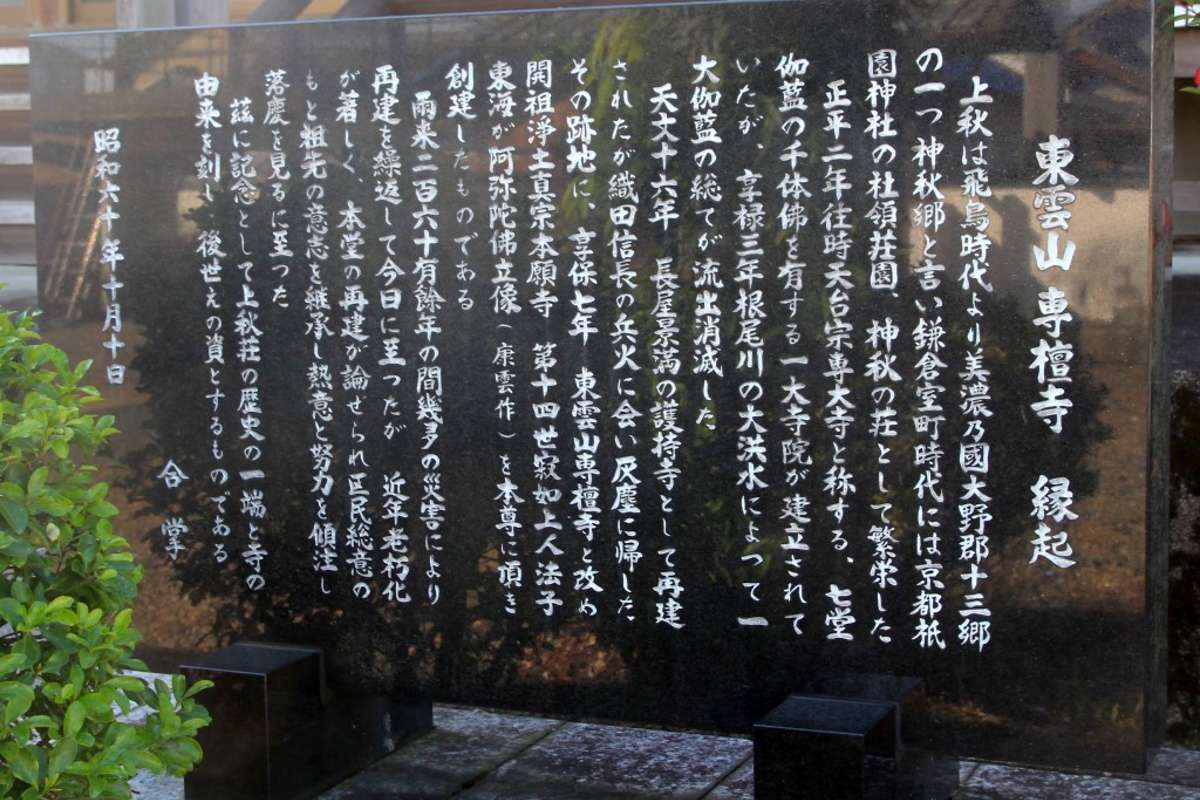 東雲山 専檀寺 縁起
上秋は飛鳥時代より美濃乃國大野郡十三郷
の一つ神秋郷と言い鎌倉室町時代には京都祇
園神社の社領荘園、神秋の荘として繁栄した
正平二年往時天台宗専大寺と称する、七堂
伽藍の千体佛を有する一大寺院が建立されて
いたが、享禄三年根尾川の大洪水によって一
大伽藍の総てが流出消滅した
天文十六年 長屋景満の護持寺として再建
されたが織田信長の兵火に会い灰塵に帰した
その跡地に、享保七年 東雲山専檀寺と改め
開祖浄土真宗本願寺 第十四世寂如上人法子
東海が阿弥陀佛立像(康雲作)を本尊に頂き
創建したものである
爾来二百六十有餘年の間幾多の災害により
再建を繰返して今日に至ったが 近年老朽化
が著しく、本堂の再建が論ぜられ区民総意の
もと祖先の意志を継承し熱意と努力を傾注し
落慶を見るに至った
茲に記念として上秋荘の歴史の一端と寺の
由来を刻し、後世えの資とするものである
合掌
昭和六十年十月十日